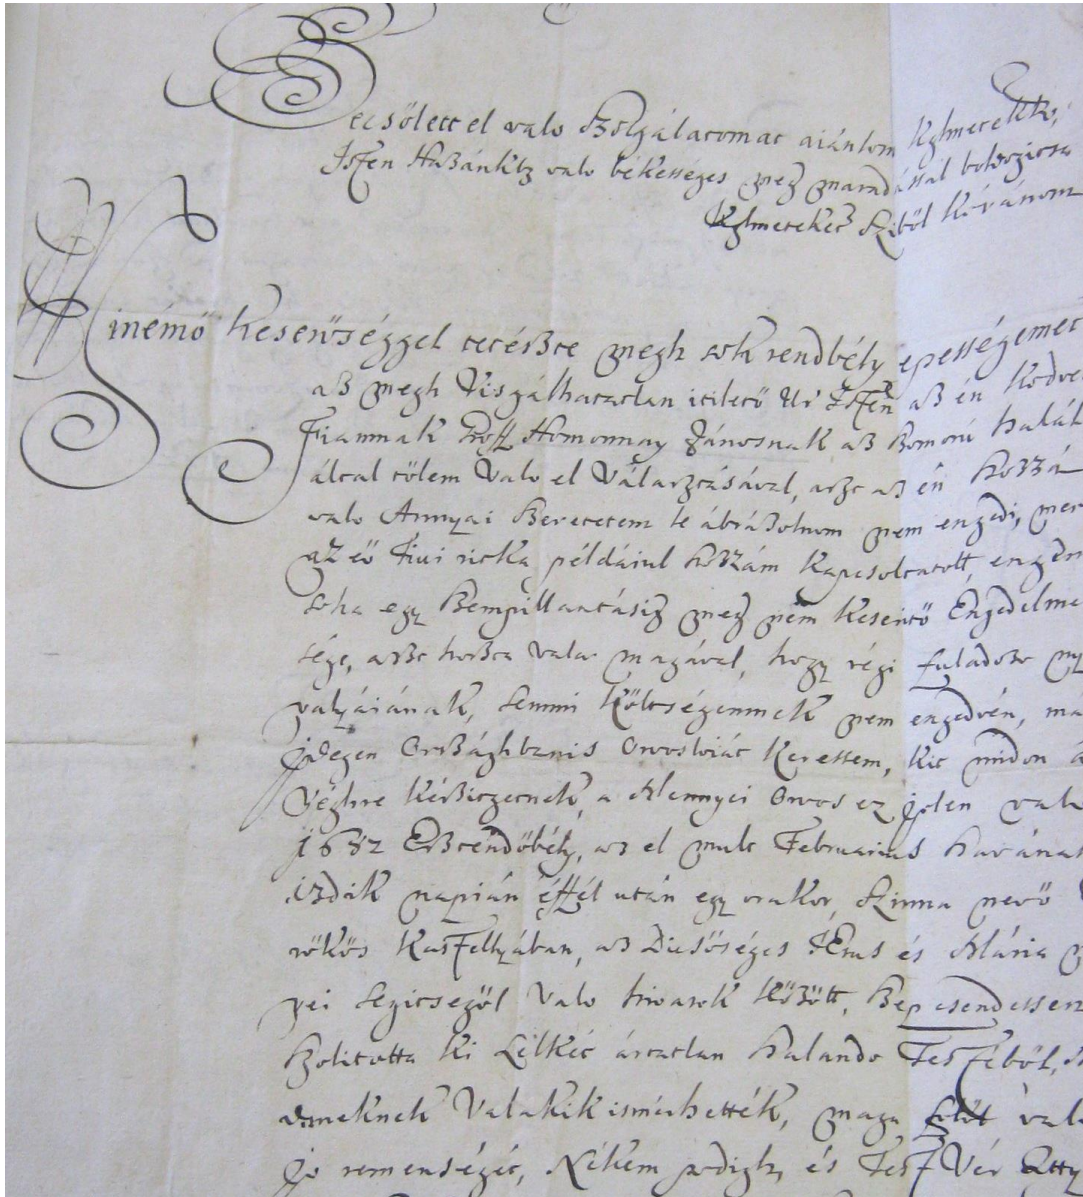 Becsölettel valo Szolgálatomat aiánlom Kglmetekk;
Isten Hazánkb valo békességes meg maradással boldogicsa
Kglmeteket Sziből Kévánom
Minémő Keserőséggel tetészte megh sok rendbély épességemet
az megh Visgálhatatlan itilető Ur Isten az én Kedves
Fiamnak Groff Homonnay Jánosnak az szomorú halál
által tőlem Való el Választásával, aszt az én hozzá
valo Annyai Szeretetem le ábrázolnom nem engedi, mert
az eő Fiui ritka példáiul hozzám kapcsoltatott engem
soha egy Szempillantásig meg nem Keserítő Engedelmes
sége, aszt hoszta vala magával, hogy régi fuladozo ny
valyáiának, semmi Költségemnek nem engedvén, má
idegen Országhbanis Orvosloiát Kerestem, kit midon
Véghre Készitzetnek, a Mennyei Orvos ez jelen valo
1682 Esztendőbély, az el mult Februarius havának
napián éfféll után egy orakor, Szinna nevő
rökös Kastellyában, az Dicsőséges Jesus és Mária
nei segitségől valo hivasok között, Szep csendessen
Szolitotta ki Lelkét ártatlan halando Testéből,
Valakik ismérhették, maga előtt valo
jo remenségét, Nékem pedigh, és Test Vér Atty